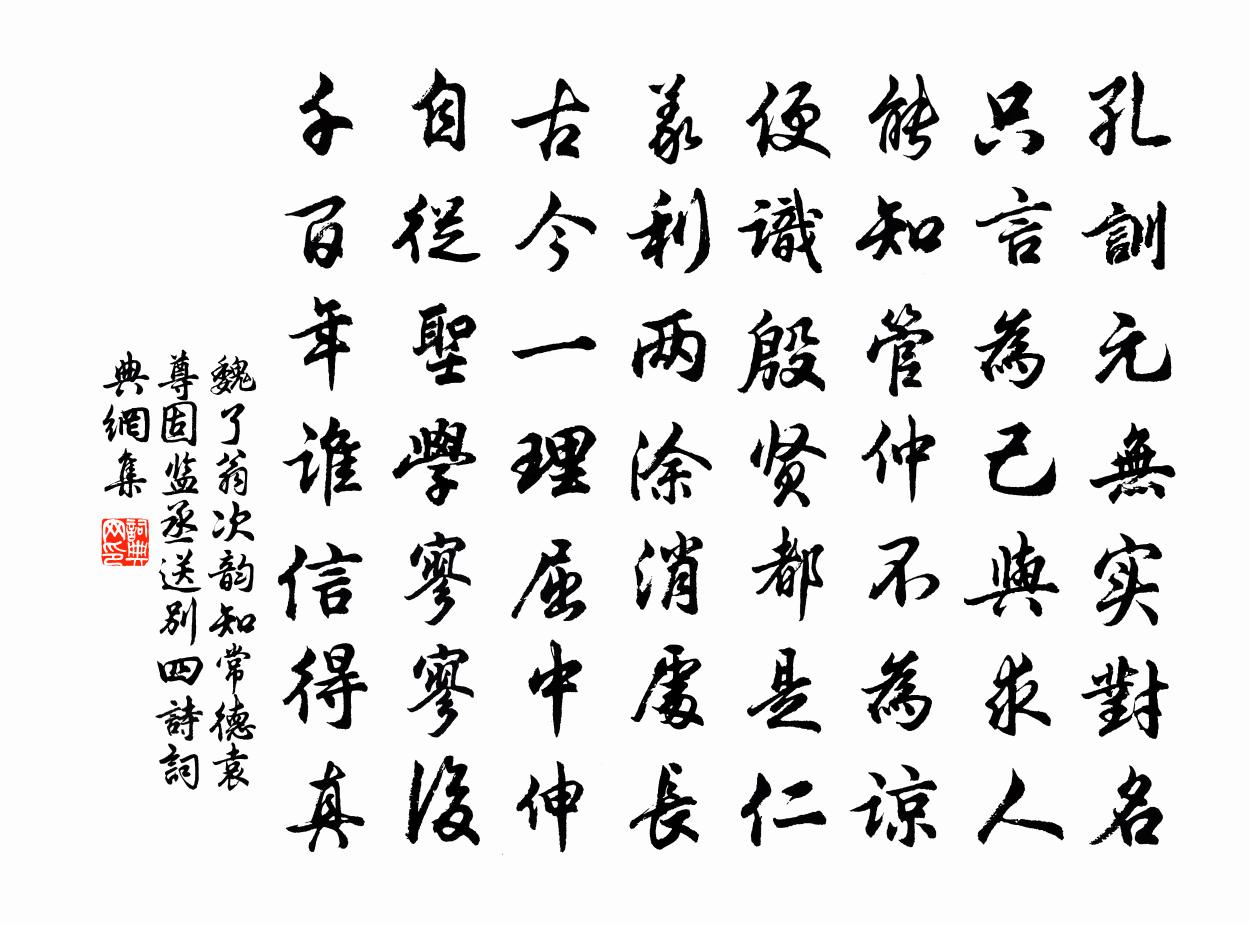 孔訓元無实對名
只言為己與求人
能知管仲不為諒
便識殷贤都是仁
義利两涂消處長
古今一理屈中伸
自從聖學寥寥後
千百年誰信得真
魏了翁次韵知常德袁
尊固监丞送别四詩詞
典網集
詞典网印